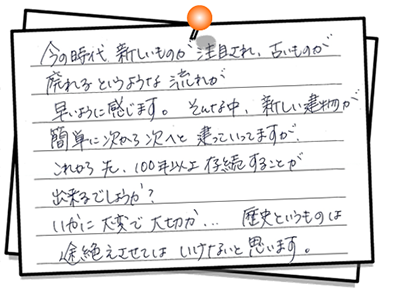 今の時代 新しいものが注目され、古いものが
廃れるというような流れが
早いように感じます。そんな中、新しい建物が
簡単に次から次へと建っていってますが、
これから先、100年以上存続することが
出来るでしょうか？
いかに大変で大切か… 歴史というものは
途絶えさせてはいけないと思います。